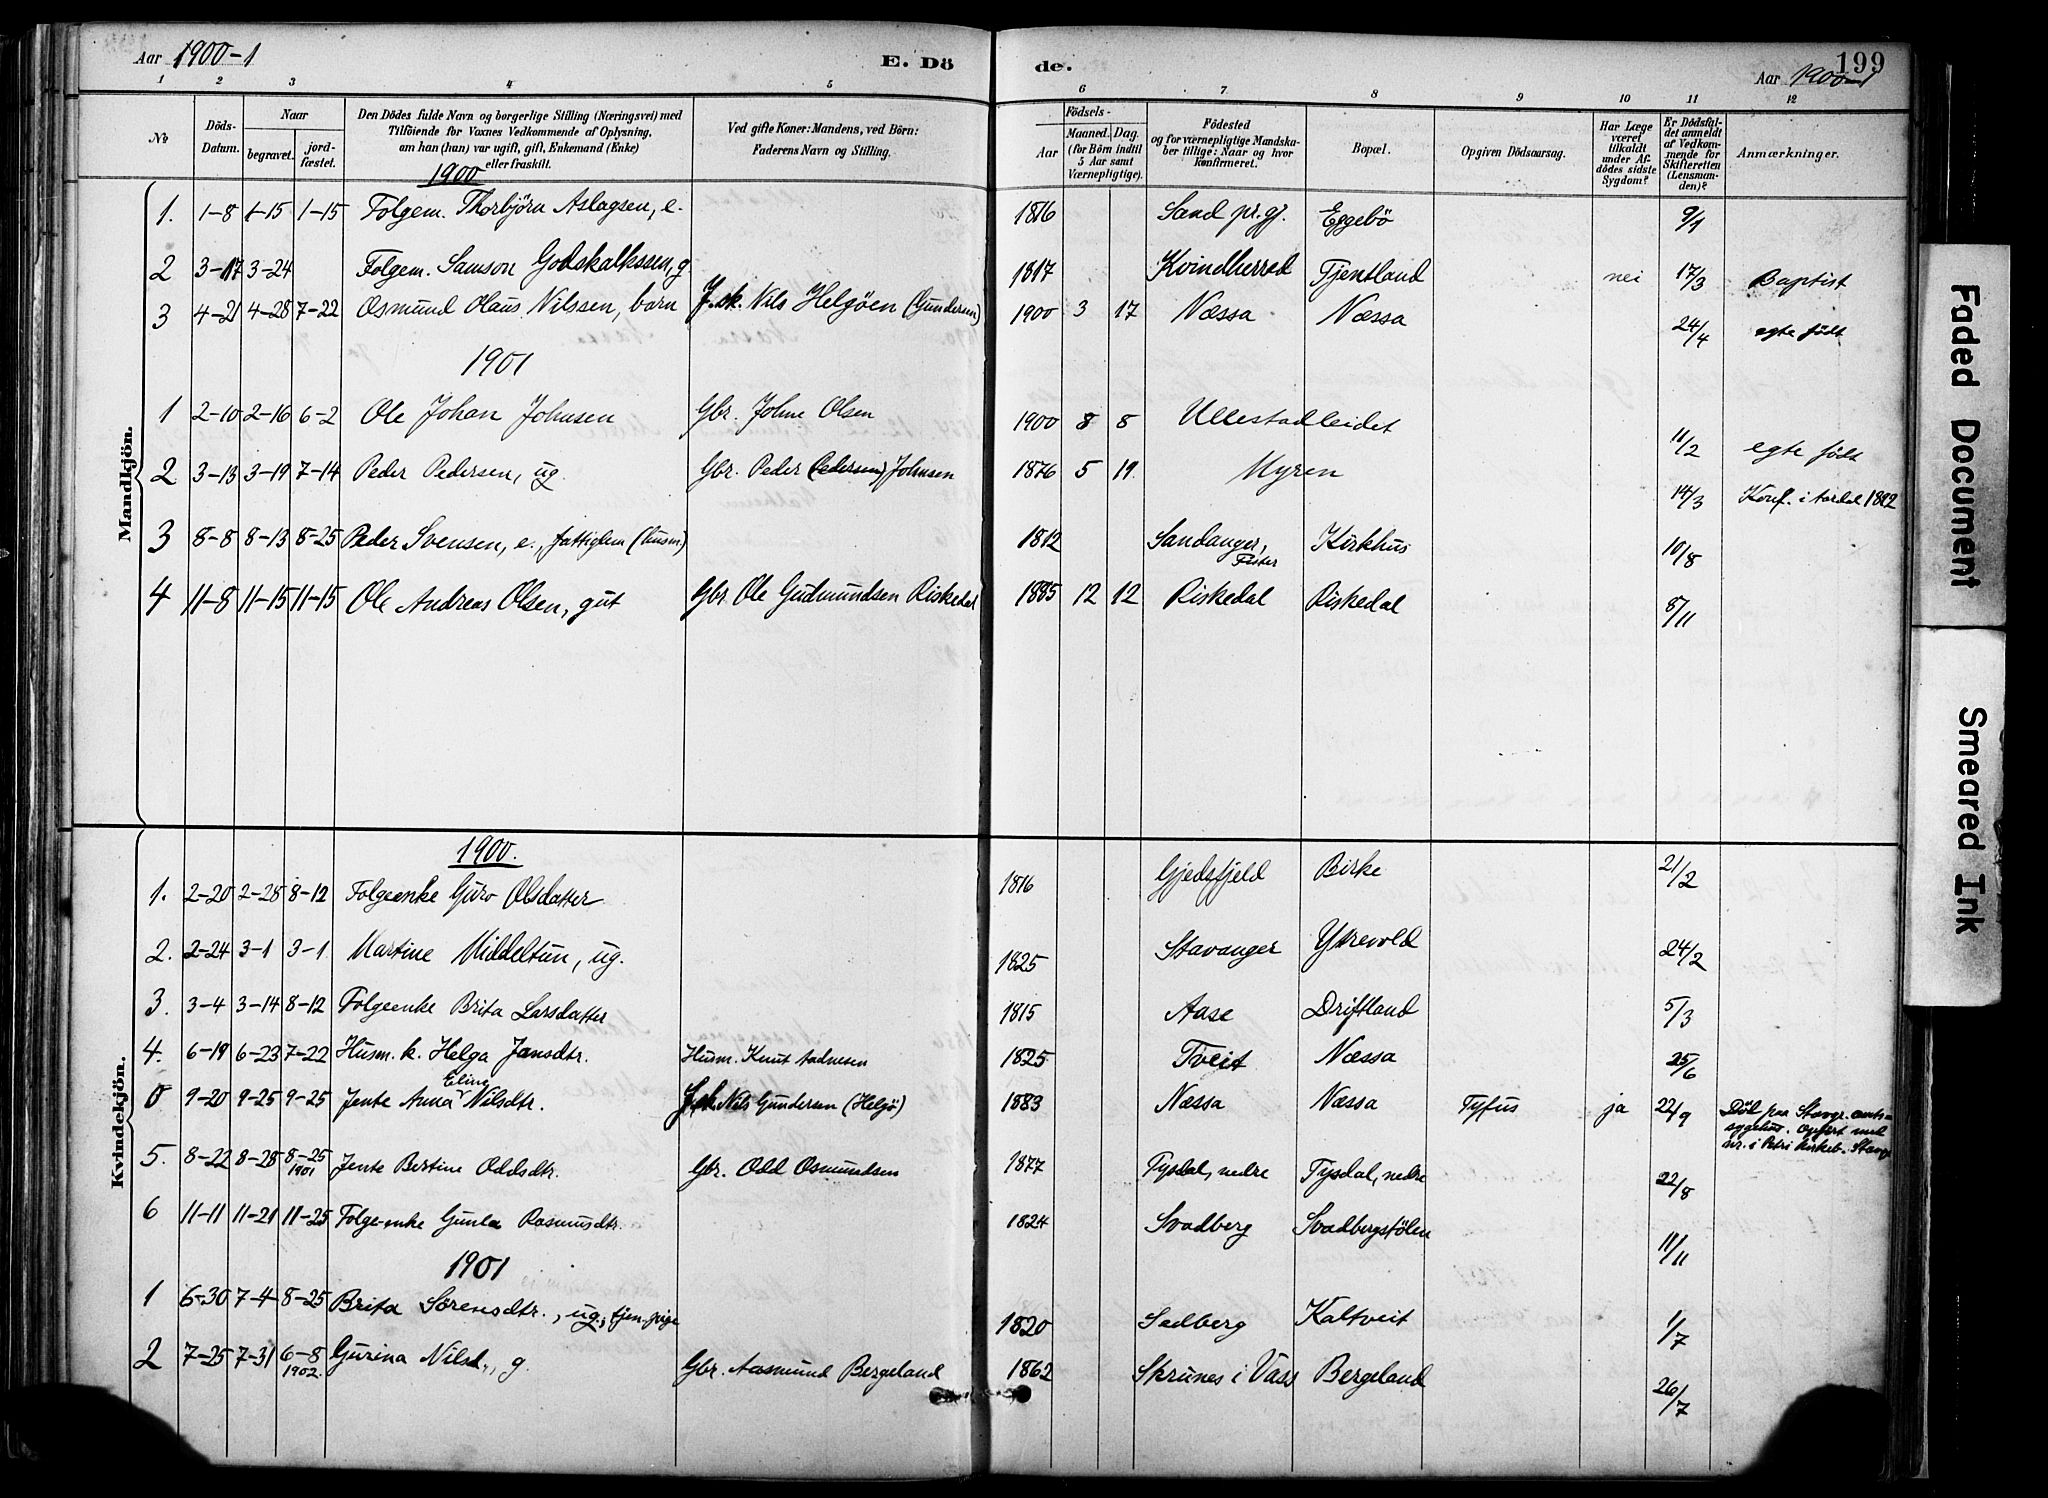 Aar 1900-1
E. Dö
de.
199
Aar 1900-1
1 2 3 4 5 6 7 8 9 10 11 12
No
Döds-Datum.
Naar
begravet.
jord-fæstet.
Den Dödes fulde Navn og borgerlige Stilling (Næringsvei) med
Tilföiende for Voxnes Vedkommende af Oplysning,
om han (han) var ugift, gift, Enkemand (Enke)
eller fraskilt.
Ved gifte Koner: Mandens, ved Börn:
Faderens Navn og Stilling.
Födsels-
Aar
Maaned. Dag.
(for Börn indtil
5 Aar samt
Værnepligtige).
Födested
og for værnepligtige Mandska-
ber tillige: Naar og hvor
Konfirmeret.
Bopæl.
Opgiven Dödsaarsag.
Har Læge
været
tilkaldt
under Af-
dödes sidste
Sygdom?
Er Dödsfal-
det anmeldt
af Vedkom-
mende for
Skifteretten
(Lensman-
den)?
Anmærkninger.
Mandkjön.
1900
1. 1-8 1-15 1-15 Folgem. Thorbjörn Aslagsen, e. 1816 Sand pr.gj. Eggebö 9/1
2 3-17 3-24 Folgem. Samson Godskalkssen, g. 1817 Kvindherred Tjentland nei 17/3 Baptist
3 4-21 4-28 7-22 Osmund Olaus Nilssen, barn J.sk. Nils Helgöen (Gundersen) 1900 3 17 Næssa Næssa 24/4 egte födt
1901
1 2-10 2-16 6-2 Ole Johan Johnsen Gbr. Johne Olsen 1900 8 8 Ullestadleidet 11/2 egte födt
2 3-13 3-19 7-14 Peder Pedersen, ug. Gbr. Peder (Pedersen) Johnsen 1876 5 19 Myren 14/3 Konf. i Aardal 1892
3 8-8 8-13 8-25 Peder Svensen, e., fattiglem (husm) 1812 Sandanger, Fister Kirkhus 10/8
4 11-8 11-15 11-15 Ole Andreas Olsen, gut Gbr. Ole Gudmundsen Riskedal 1885 12 12 Riskedal Riskedal 8/11
Kvindekjön.
1900.
1. 2-20 2-28 8-12 Folgeenke Guro Olsdatter 1816 Gjedsfjeld Birke 21/2
2. 2-24 3-1 3-1 Martine Middeltun, ug. 1825 Stavanger Ytrevold 24/2
3. 3-4 3-14 8-12 Folgeenke Brita Larsdatter 1815 Aase Driftland 5/3
4. 6-19 6-23 7-22 Husm. k. Helga Jansdtr. Husm. Knut Aadnesen 1825 Tveit Næssa 25/6
0 9-20 9-25 9-25 Jente Anna Eline Nilsdtr. J.sk. Nils Gundersen (Helgö) 1883 Næssa Næssa Tyfus ja 22/9 Död paa Stavgr. amts-
sygehus. Opfört med
nr. i Petri Kirkeb. Stavgr
5. 8-22 8-28 8-25 1901 Jente Bertine Oddsdtr. Gbr. Odd Osmundsen 1877 Tysdal, nedre Tysdal, nedre 22/8
6 11-11 11-21 11-25 Folge-enke Gunla Rasmusdtr. 1824 Svadberg Svadbergstölen 11/11
1901
1 6-30 7-4 8-25 Brita Sörensdtr., ug., tjen.pige 1820 Sedberg Kaltveit 1/7
2 7-25 7-31 6-8 1902. Gurina Nilsd., g. Gbr. Aasmund Bergeland 1862 Skrunes i Vass Bergeland 26/7
Faded Document
Smeared Ink